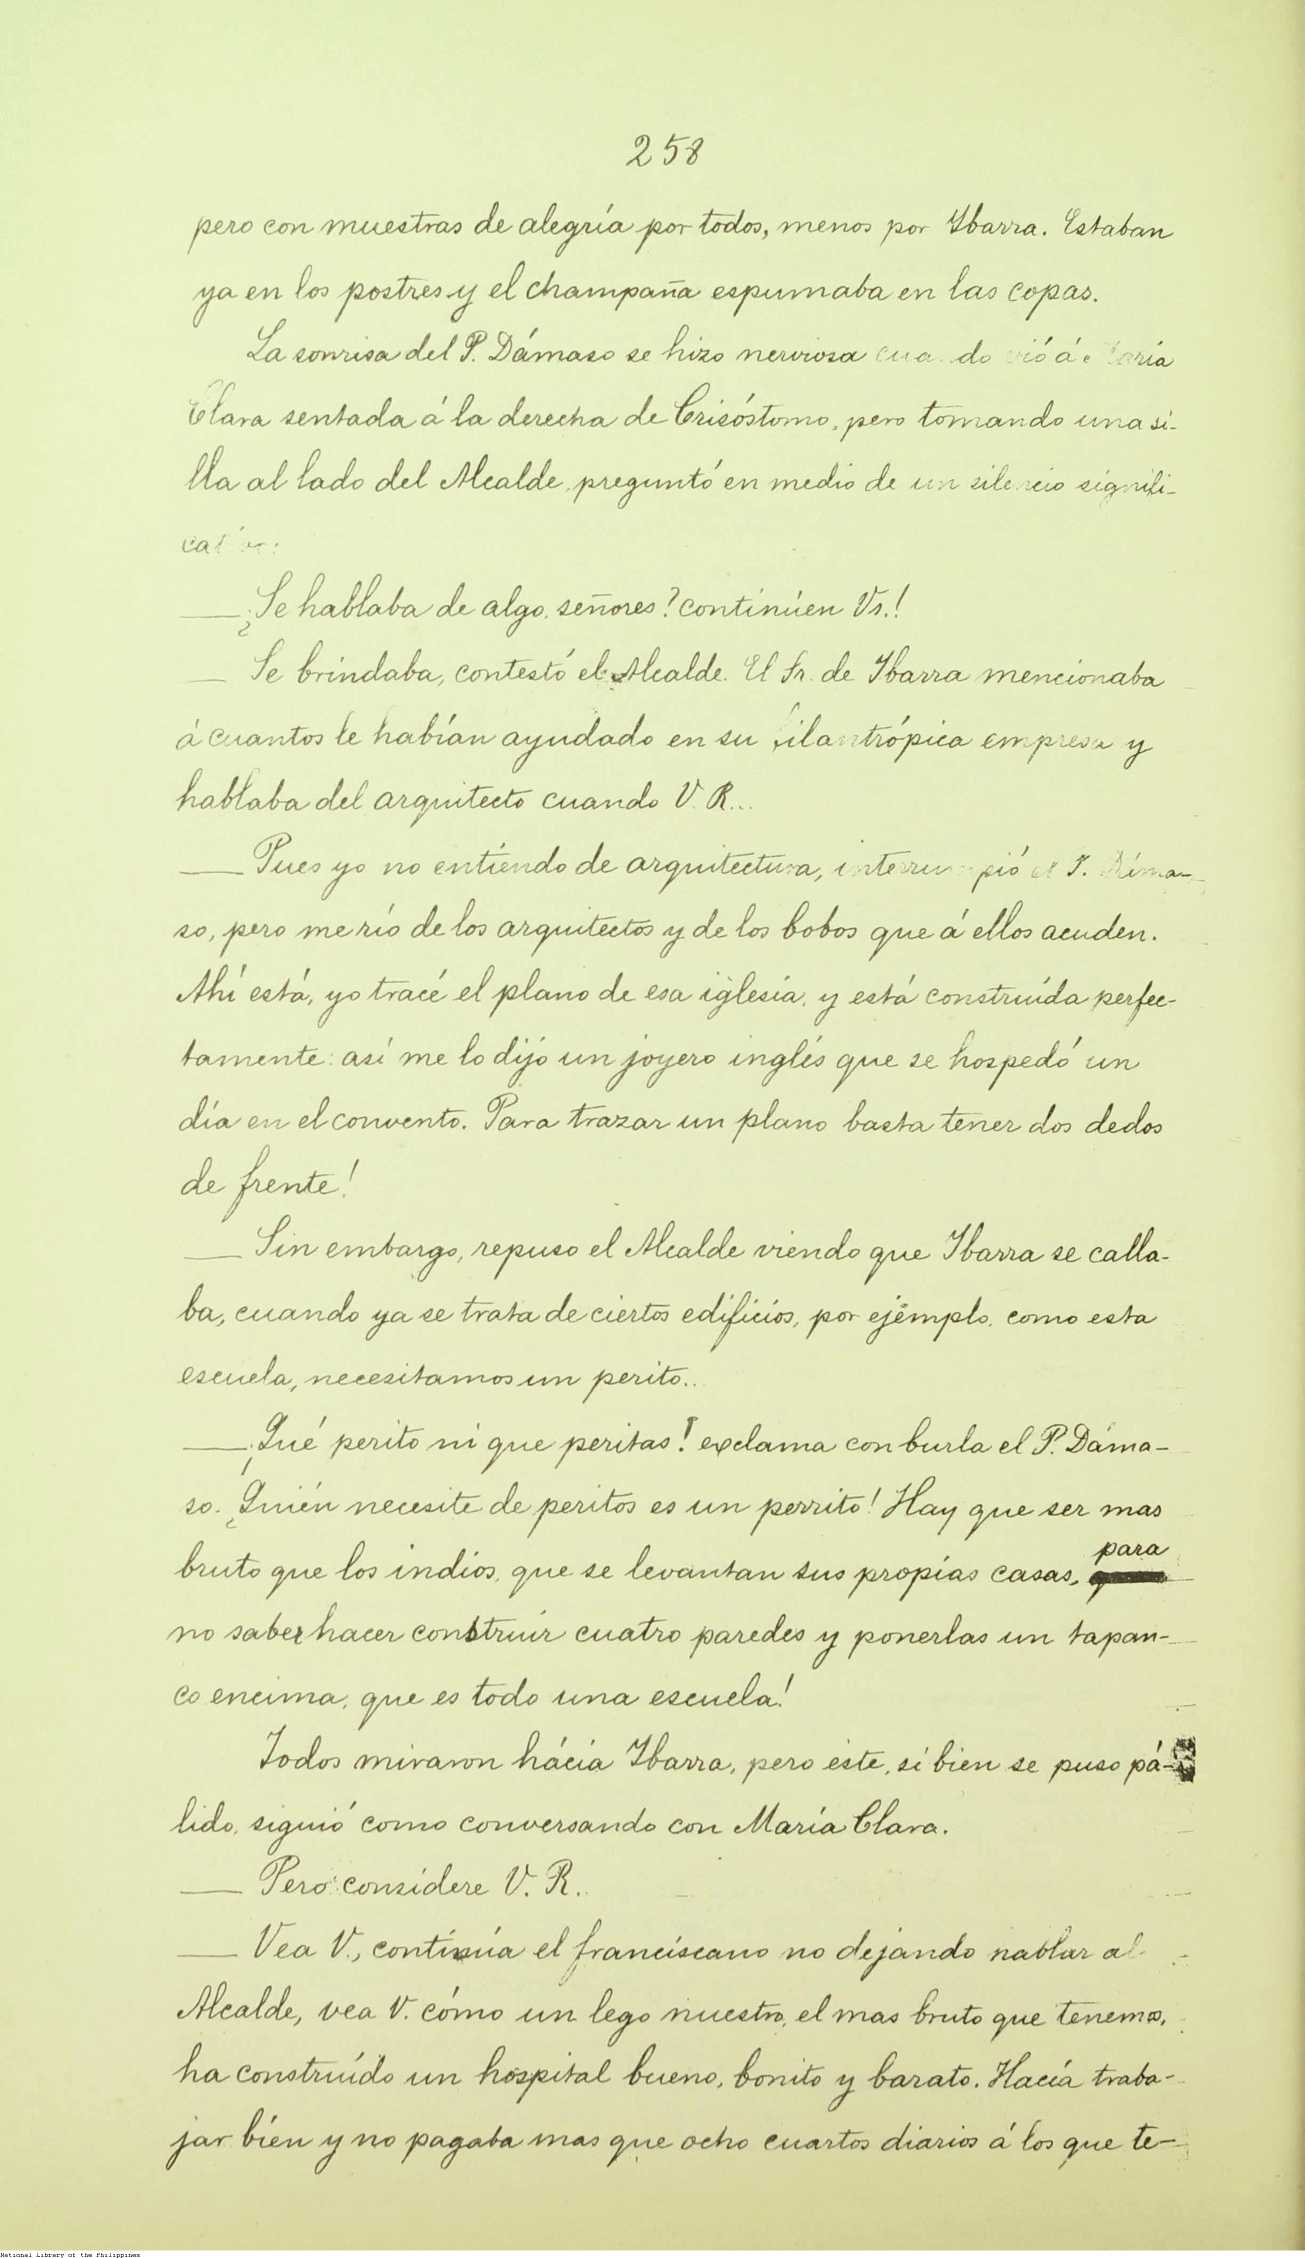 258
pero con muestras de alegría por todos, menos por Ibarra. Estaban
ya en los postres y el champaña espumaba en las copas.
La sonrisa del P. Dámaso se hizo nerviosa cuando vió á María
Clara sentada á la derecha de Crisóstomo, pero tomando una si-
lla al lado del Alcalde, preguntó en medio de un silencio signifi-
cativo:
— ¿Se hablaba de algo, señores? continúen Vs.!
— Se brindaba, contestó el Alcalde. El Sr. de Ibarra mencionaba
á cuantos le habían ayudado en su filantrópica empresa y
hablaba del arquitecto cuando V. R...
— Pues yo no entiendo de arquitectura, interrumpió el P. Dáma-
so, pero me río de los arquitectos y de los bobos que á ellos acuden.
Ahí está, yo tracé el plano de esa iglesia, y está construída perfec-
tamente: así me lo dijo un joyero inglés que se hospedó un
día en el convento. Para trazar un plano basta tener dos dedos
de frente!
— Sin embargo, repuso el Alcalde viendo que Ibarra se calla-
ba, cuando ya se trata de ciertos edificios, por ejémplo, como esta
escuela, necesitamos un perito..
— ¡Qué perito ni que peritas! exclama con burla el P. Dáma-
so. ¿Quién necesite de peritos es un perrito! Hay que ser mas
bruto que los indios, que se levantan sus propias casas, para
no saber hacer construir cuatro paredes y ponerlas un tapan-
co encima, que es todo una escuela!
Todos miraron hácia Ibarra, pero éste, si bien se puso pá-
lido, siguió como conversando con María Clara.
— Pero considere V. R..
— Vea V., continúa el franciscano no dejando hablar al
Alcalde, vea V. cómo un lego nuestro, el mas bruto que tenemos,
ha construído un hospital bueno, bonito y barato. Hacía traba-
jar bien y no pagaba mas que ocho cuartos diarios á los que te-
National Library of the Philippines